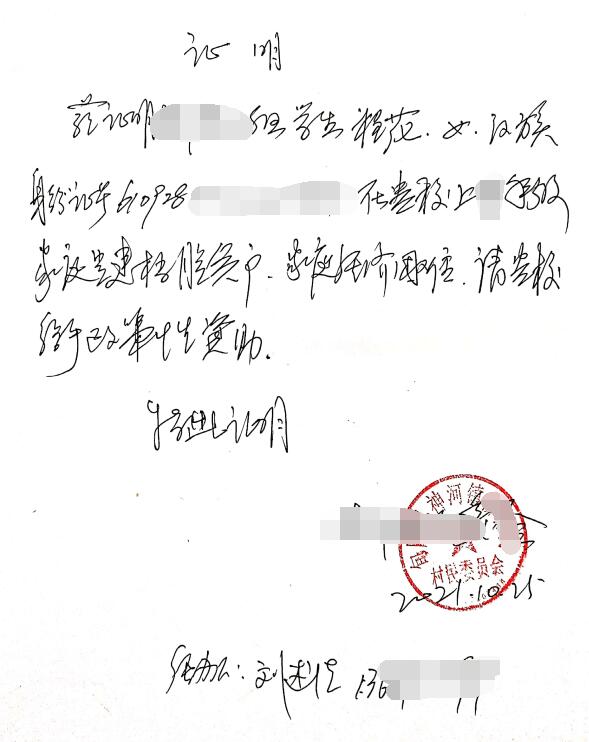 证明
兹证明 组学生 程花、女、汉族
身份证号610928 在贵校上 年级
家庭 建档 脱贫户、家庭经济困难、请贵校
给予政策性资助。
特此证明
神河镇
村民委员会
2021.10.25
经办人: 刘 136